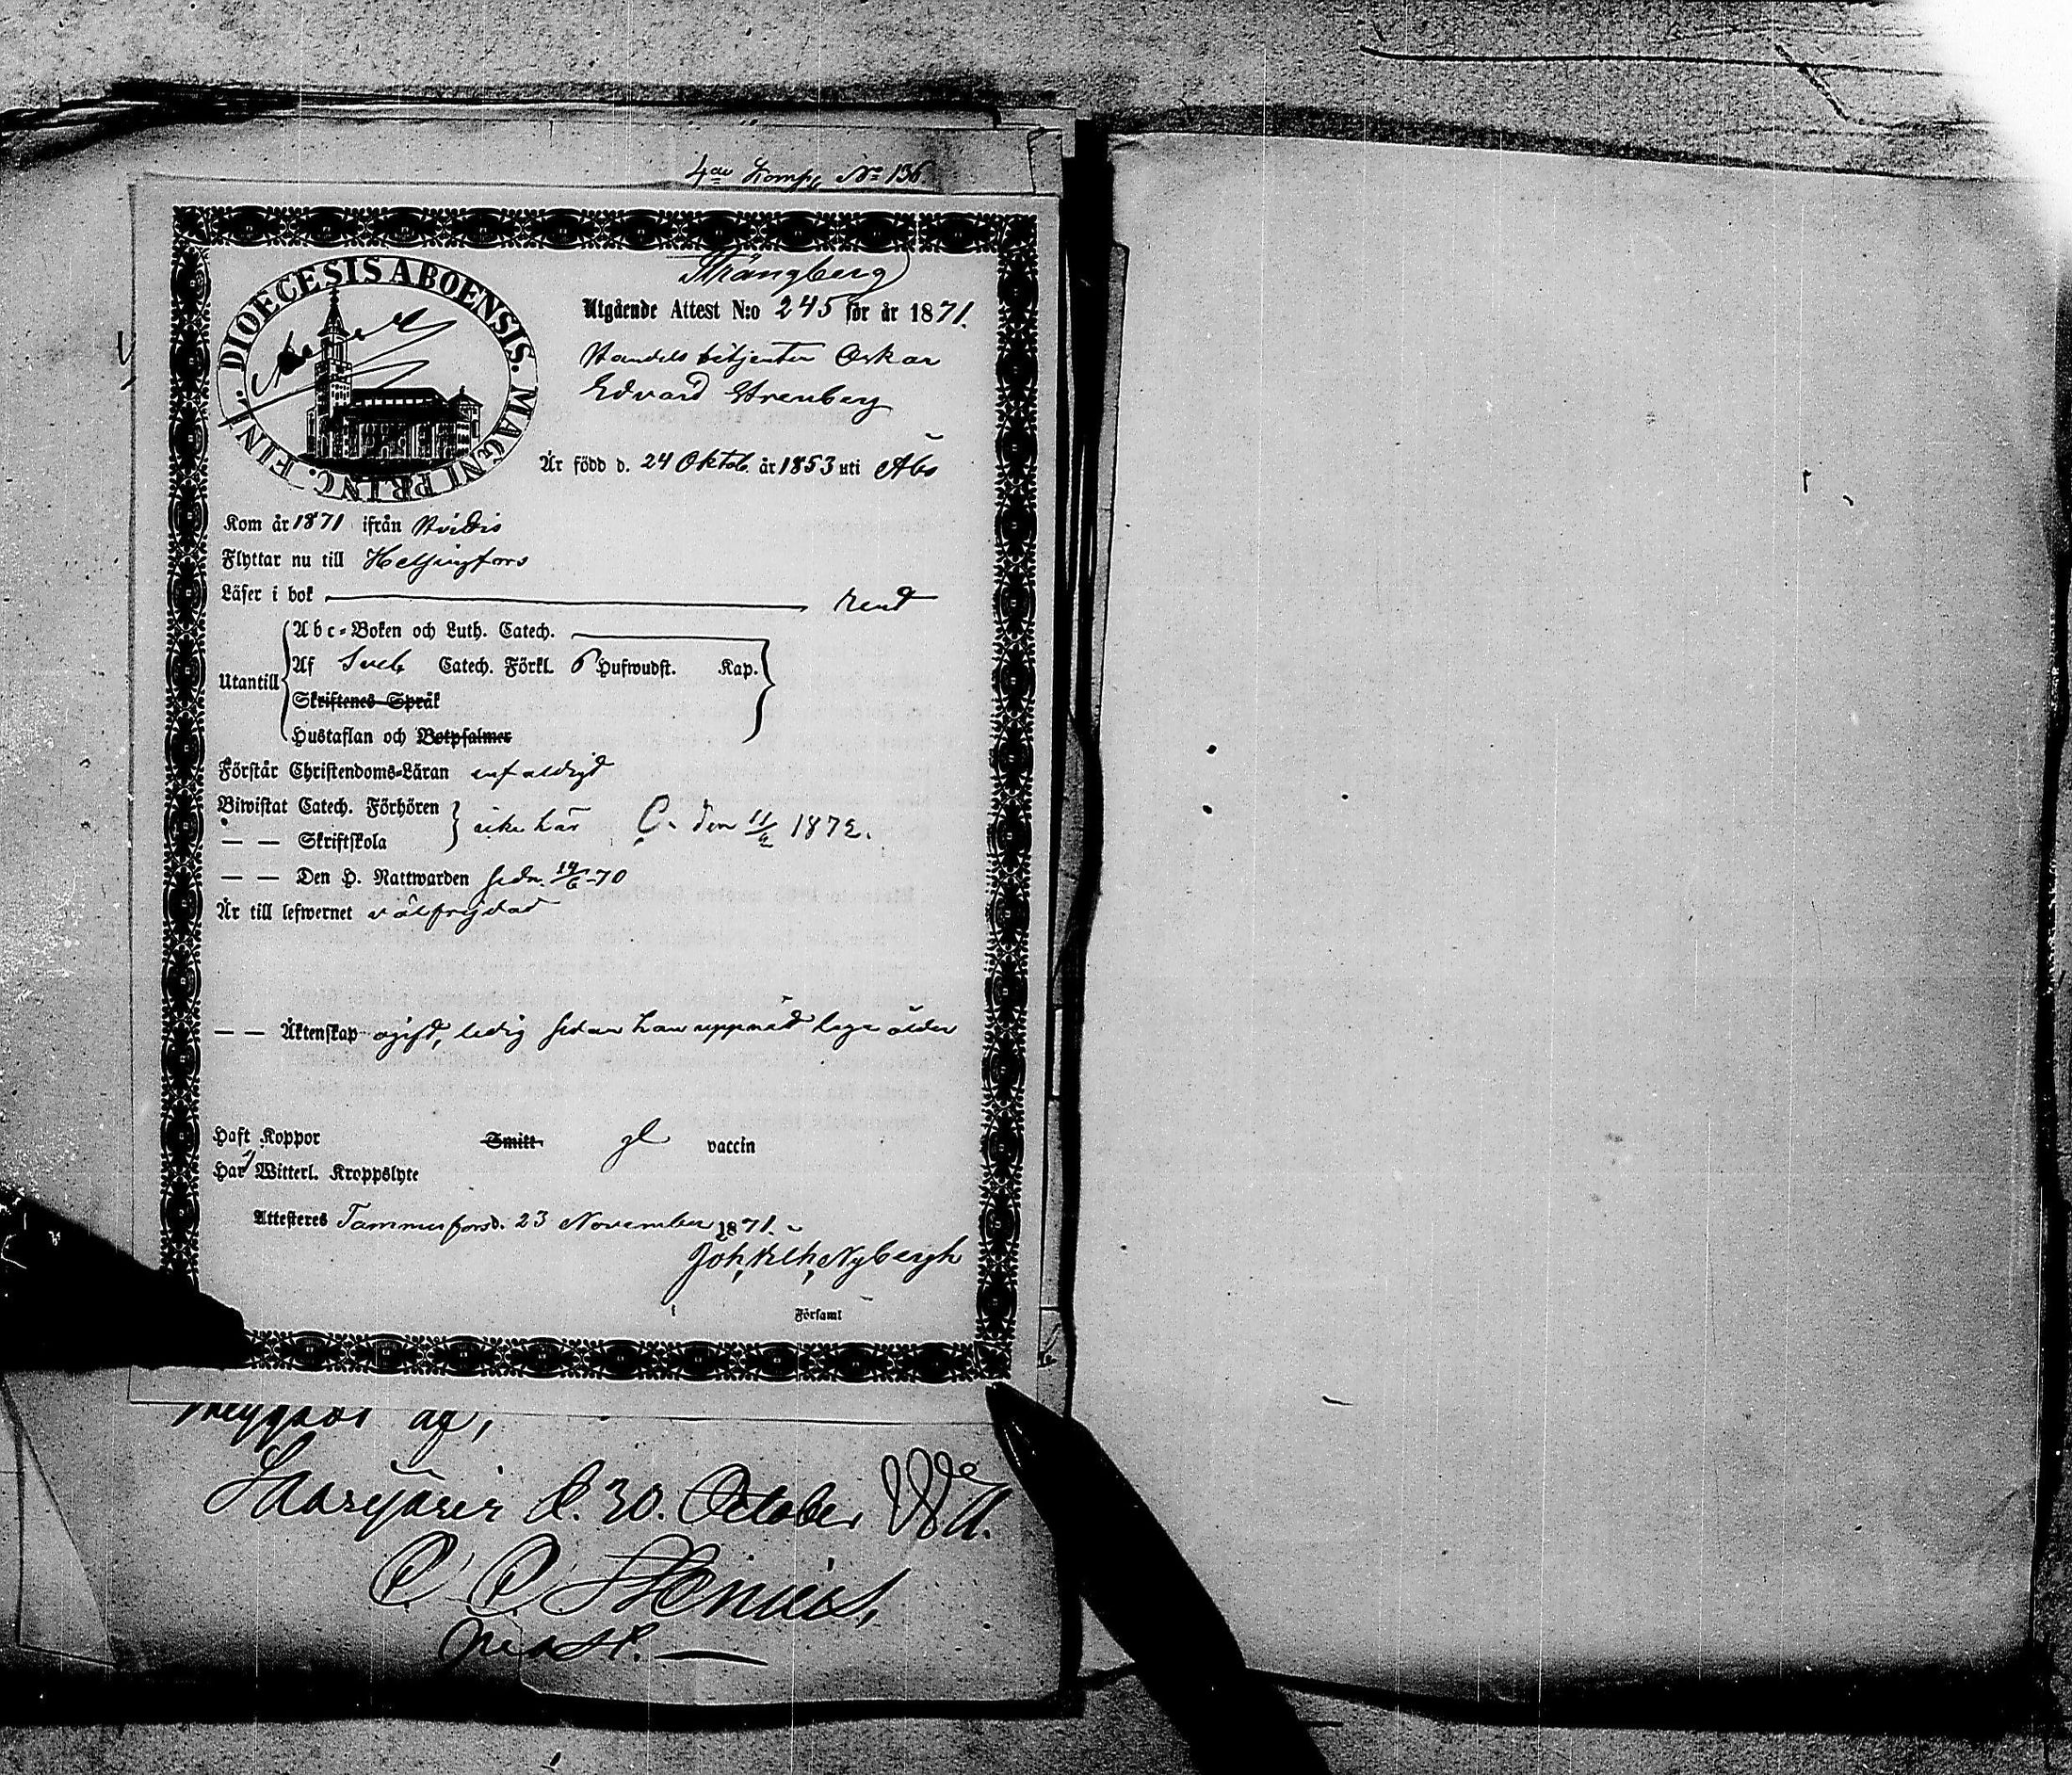 4de Komp. No 136
DIOECESIS ABOENSIS. MAGNI PRINC. FINL.
Strångberg
Utgående Attest N:o 245 för år 1871.
Handelsbetjenten Oskar
Edvard Strenberg
Är född d. 24 Oktob. år 1853 uti Åbo
Kom år 1871 ifrån Hvidis
Flyttar nu till Helsingfors
Läser i bok rent
Utantill
Abc-Boken och Luth. Catech.
Af Sveb Catech. Förkl. 6 Hufwudst. Kap.
Skriftenes Språk
Hustaflan och Botpsalmer
Förstår Christendoms-Läran enfaldigt
Biwistat Catech. Förhören
— — Skriftskola
icke här C. den 11/2 1872.
— — Den H. Nattwarden sedn. 19/6 -70
Är till lefwernet välfrejdad
— — Äktenskap ogift, ledig sedan han uppnått laga ålder
Haft Koppor Smitt gl vaccin
Har Witterl. Kroppslyte
Attesteres Tammerfors d. 23 November 1871.
Joh. Vilh. Nybergh
Församl
af,
Saarijärvi d. 30. October